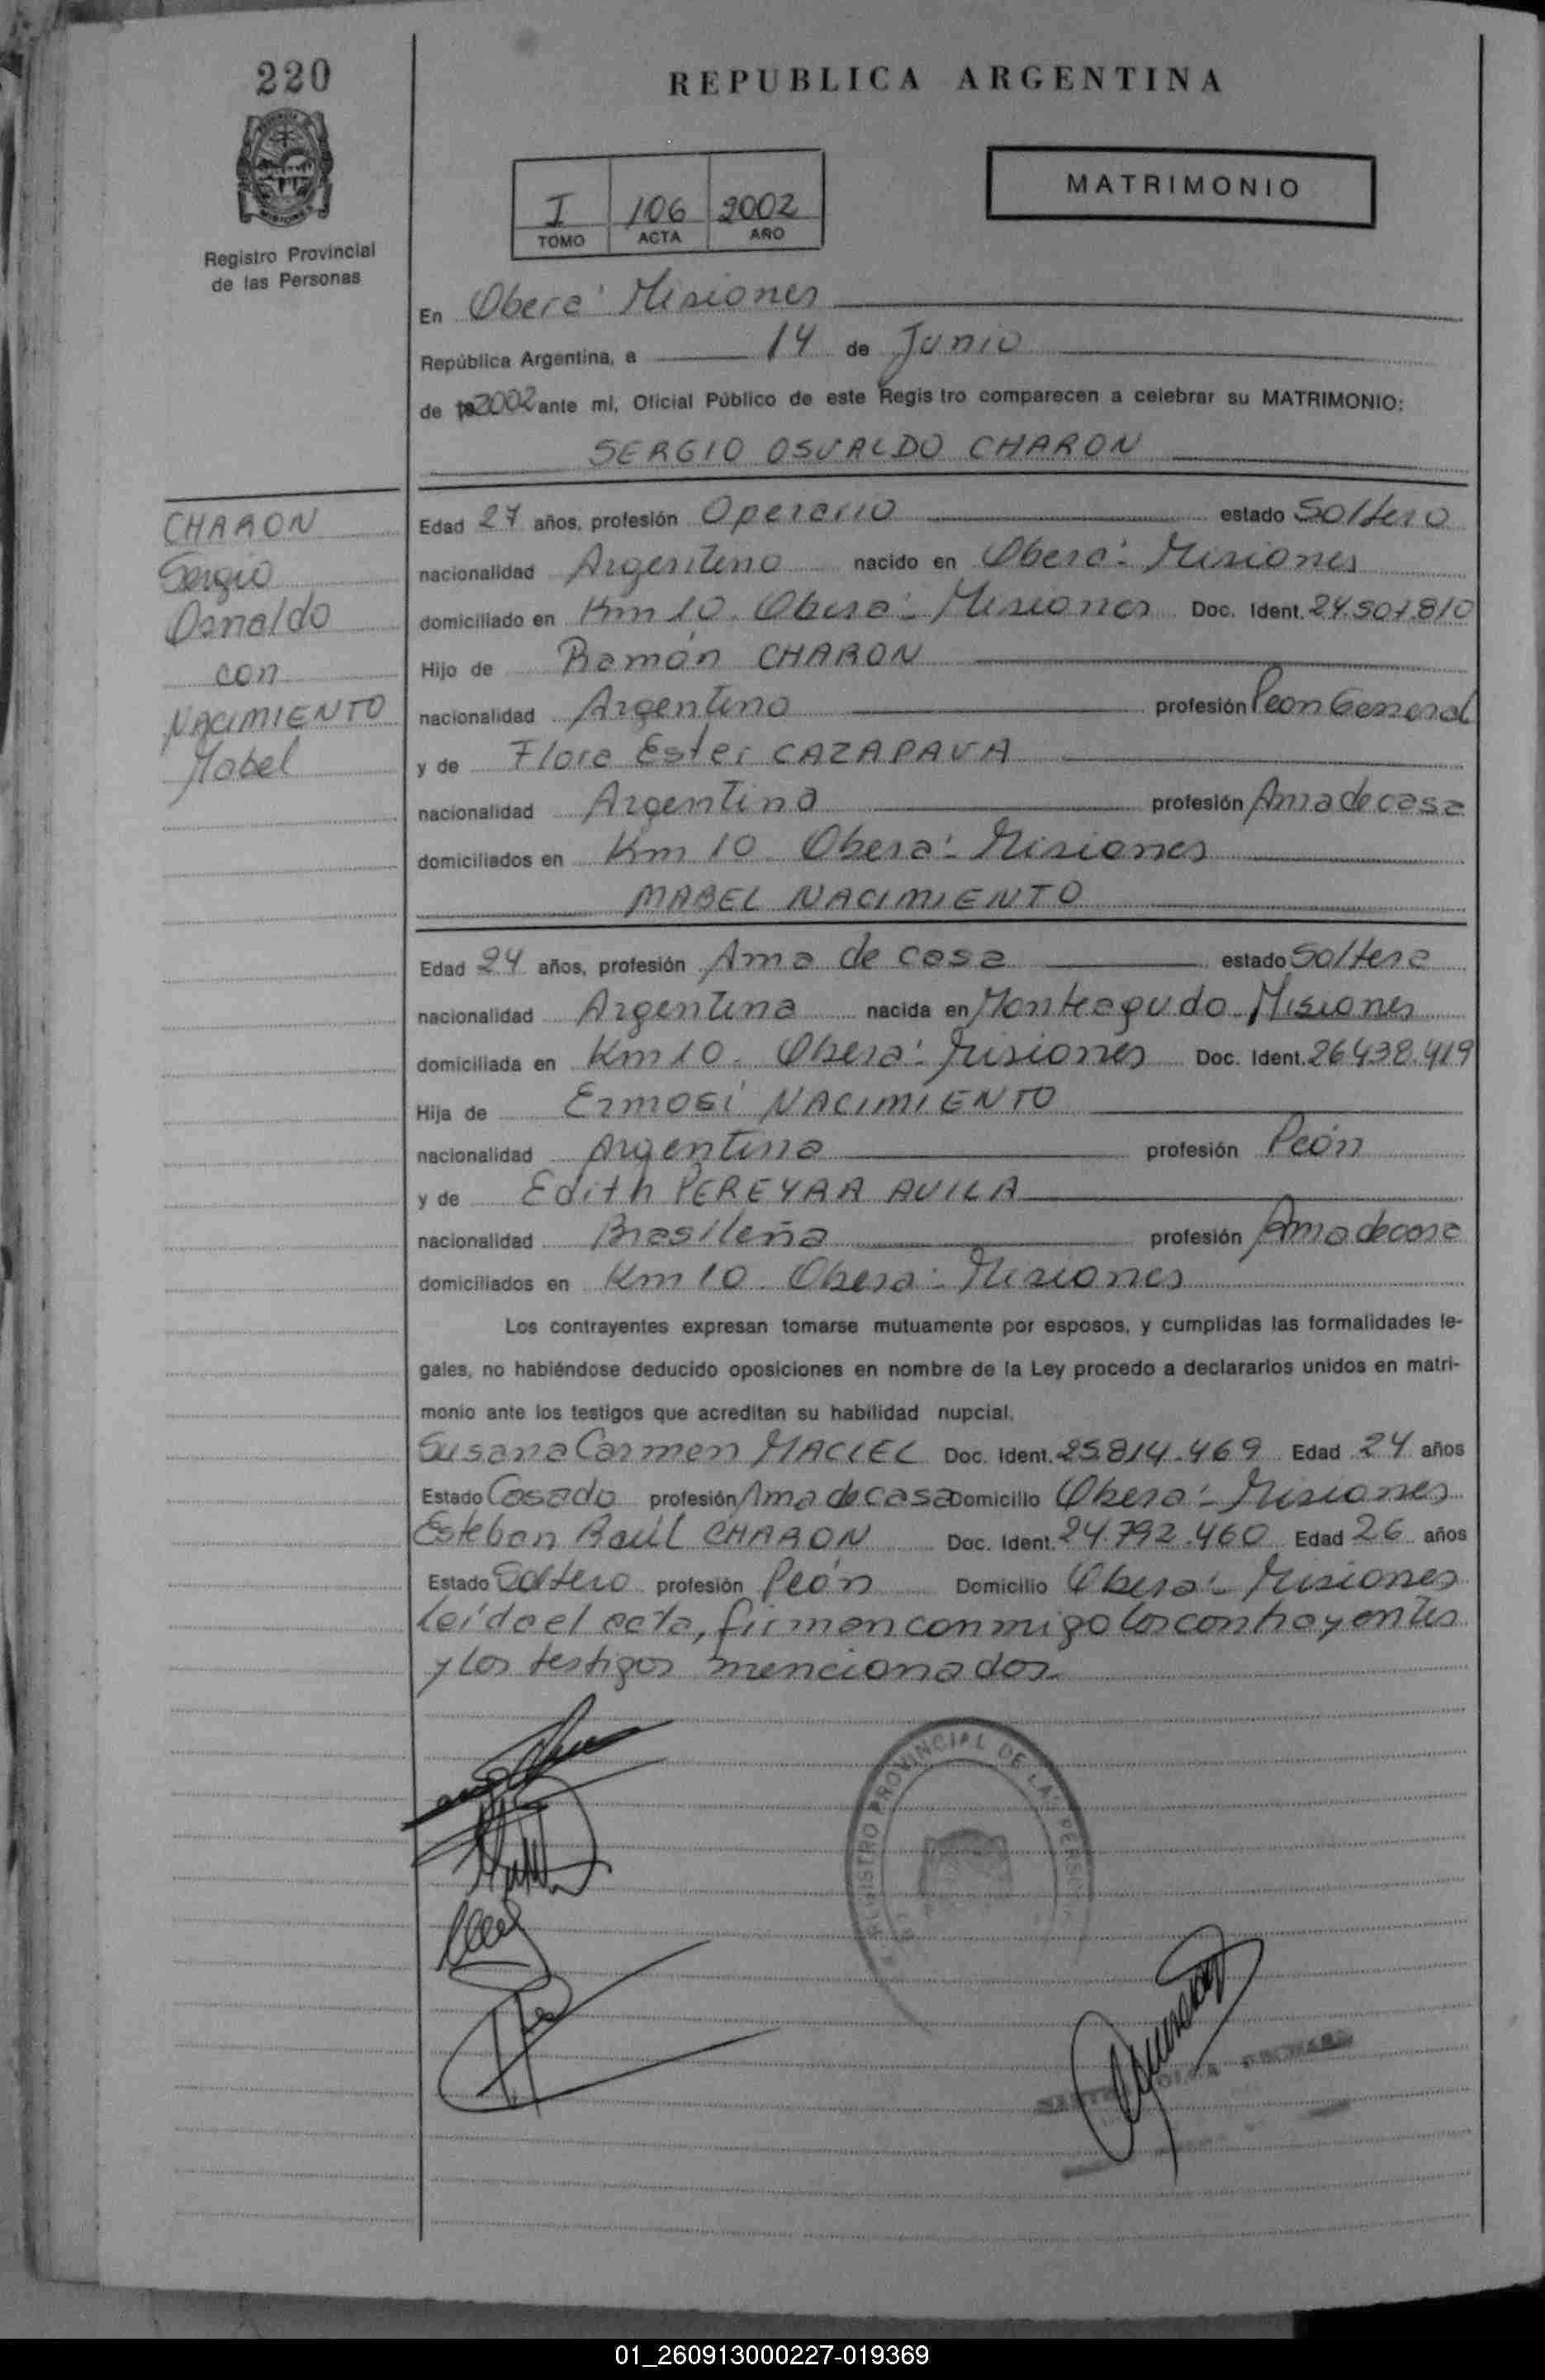 220
REPUBLICA ARGENTINA
MATRIMONIO
I 106 2002
TOMO ACTA AÑO
Registro Provincial
de las Personas
En Oberá Misiones
República Argentina, a 14 de Junio
de 2002 ante mi, Oficial Público de este Registro comparecen a celebrar su MATRIMONIO:
SERGIO OSVALDO CHARON
CHARON
Sergio
Osvaldo
con
NACIMIENTO
Mabel
Edad 27 años, profesión Operario estado Soltero
nacionalidad Argentino nacido en Oberá - Misiones
domiciliado en Km 10. Oberá - Misiones Doc. Ident. 24.501.810
Hijo de Ramón CHARON
nacionalidad Argentino profesión Peon General
y de Flora Ester CAZAPAVA
nacionalidad Argentina profesión Ama de casa
domiciliados en Km 10. Oberá - Misiones
MABEL NACIMIENTO
Edad 24 años, profesión Ama de casa estado Soltera
nacionalidad Argentina nacida en Monteagudo - Misiones
domiciliada en Km 10. Oberá - Misiones Doc. Ident. 26.438.419
Hija de NACIMIENTO
nacionalidad Argentina profesión Peón
y de Edith PEREYRA AVILA
nacionalidad Brasileña profesión Ama de casa
domiciliados en Km 10. Oberá - Misiones
Los contrayentes expresan tomarse mutuamente por esposos, y cumplidas las formalidades le-
gales, no habiéndose deducido oposiciones en nombre de la Ley procedo a declararlos unidos en matri-
monio ante los testigos que acreditan su habilidad nupcial.
Susana Carmen MACIEL Doc. Ident. 25.814.469 Edad 24 años
Estado Casado profesión Ama de casa Domicilio Oberá - Misiones
Esteban Raúl CHARON Doc. Ident. 24.792.460 Edad 26 años
Estado Soltero profesión Peón Domicilio Oberá - Misiones
Leída el acta, firman conmigo los contrayentes
y los testigos mencionados.
REGISTRO PROVINCIAL DE LAS PERSONAS
01_260913000227-019369